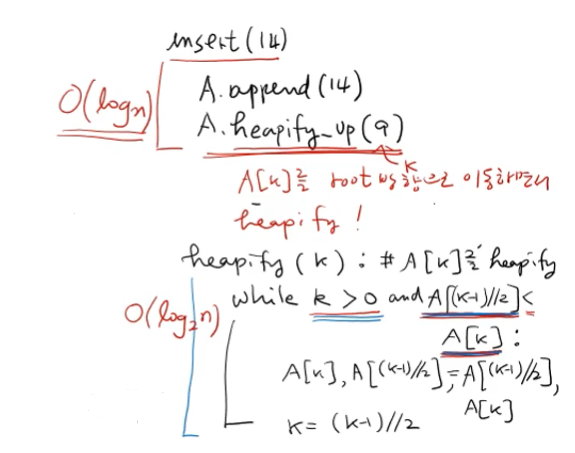 insert(14)
O(logn)
A.append(14)
A.heapify_up(9)
K
A[k]를 root 방향으로 이동하면서
heapify!
heapify(k): # A[k]를 heapify
O(log₂n)
while k>0 and A[(k-1)//2]<
A[k]:
A[k], A[(k-1)//2] = A[(k-1)//2],
A[k]
k = (k-1)//2